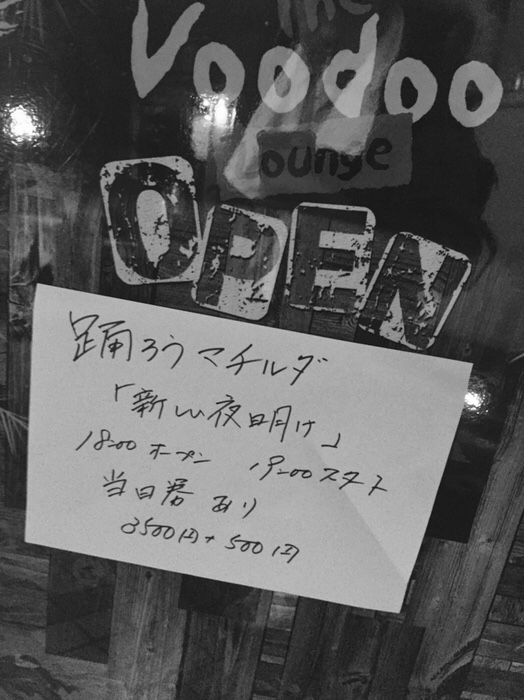 The
Voodoo
Lounge
OPEN
踊ろうマチルダ
「新しい夜明け」
18:00 オープン 19:00 スタート
当日券 あり
3500円+500円